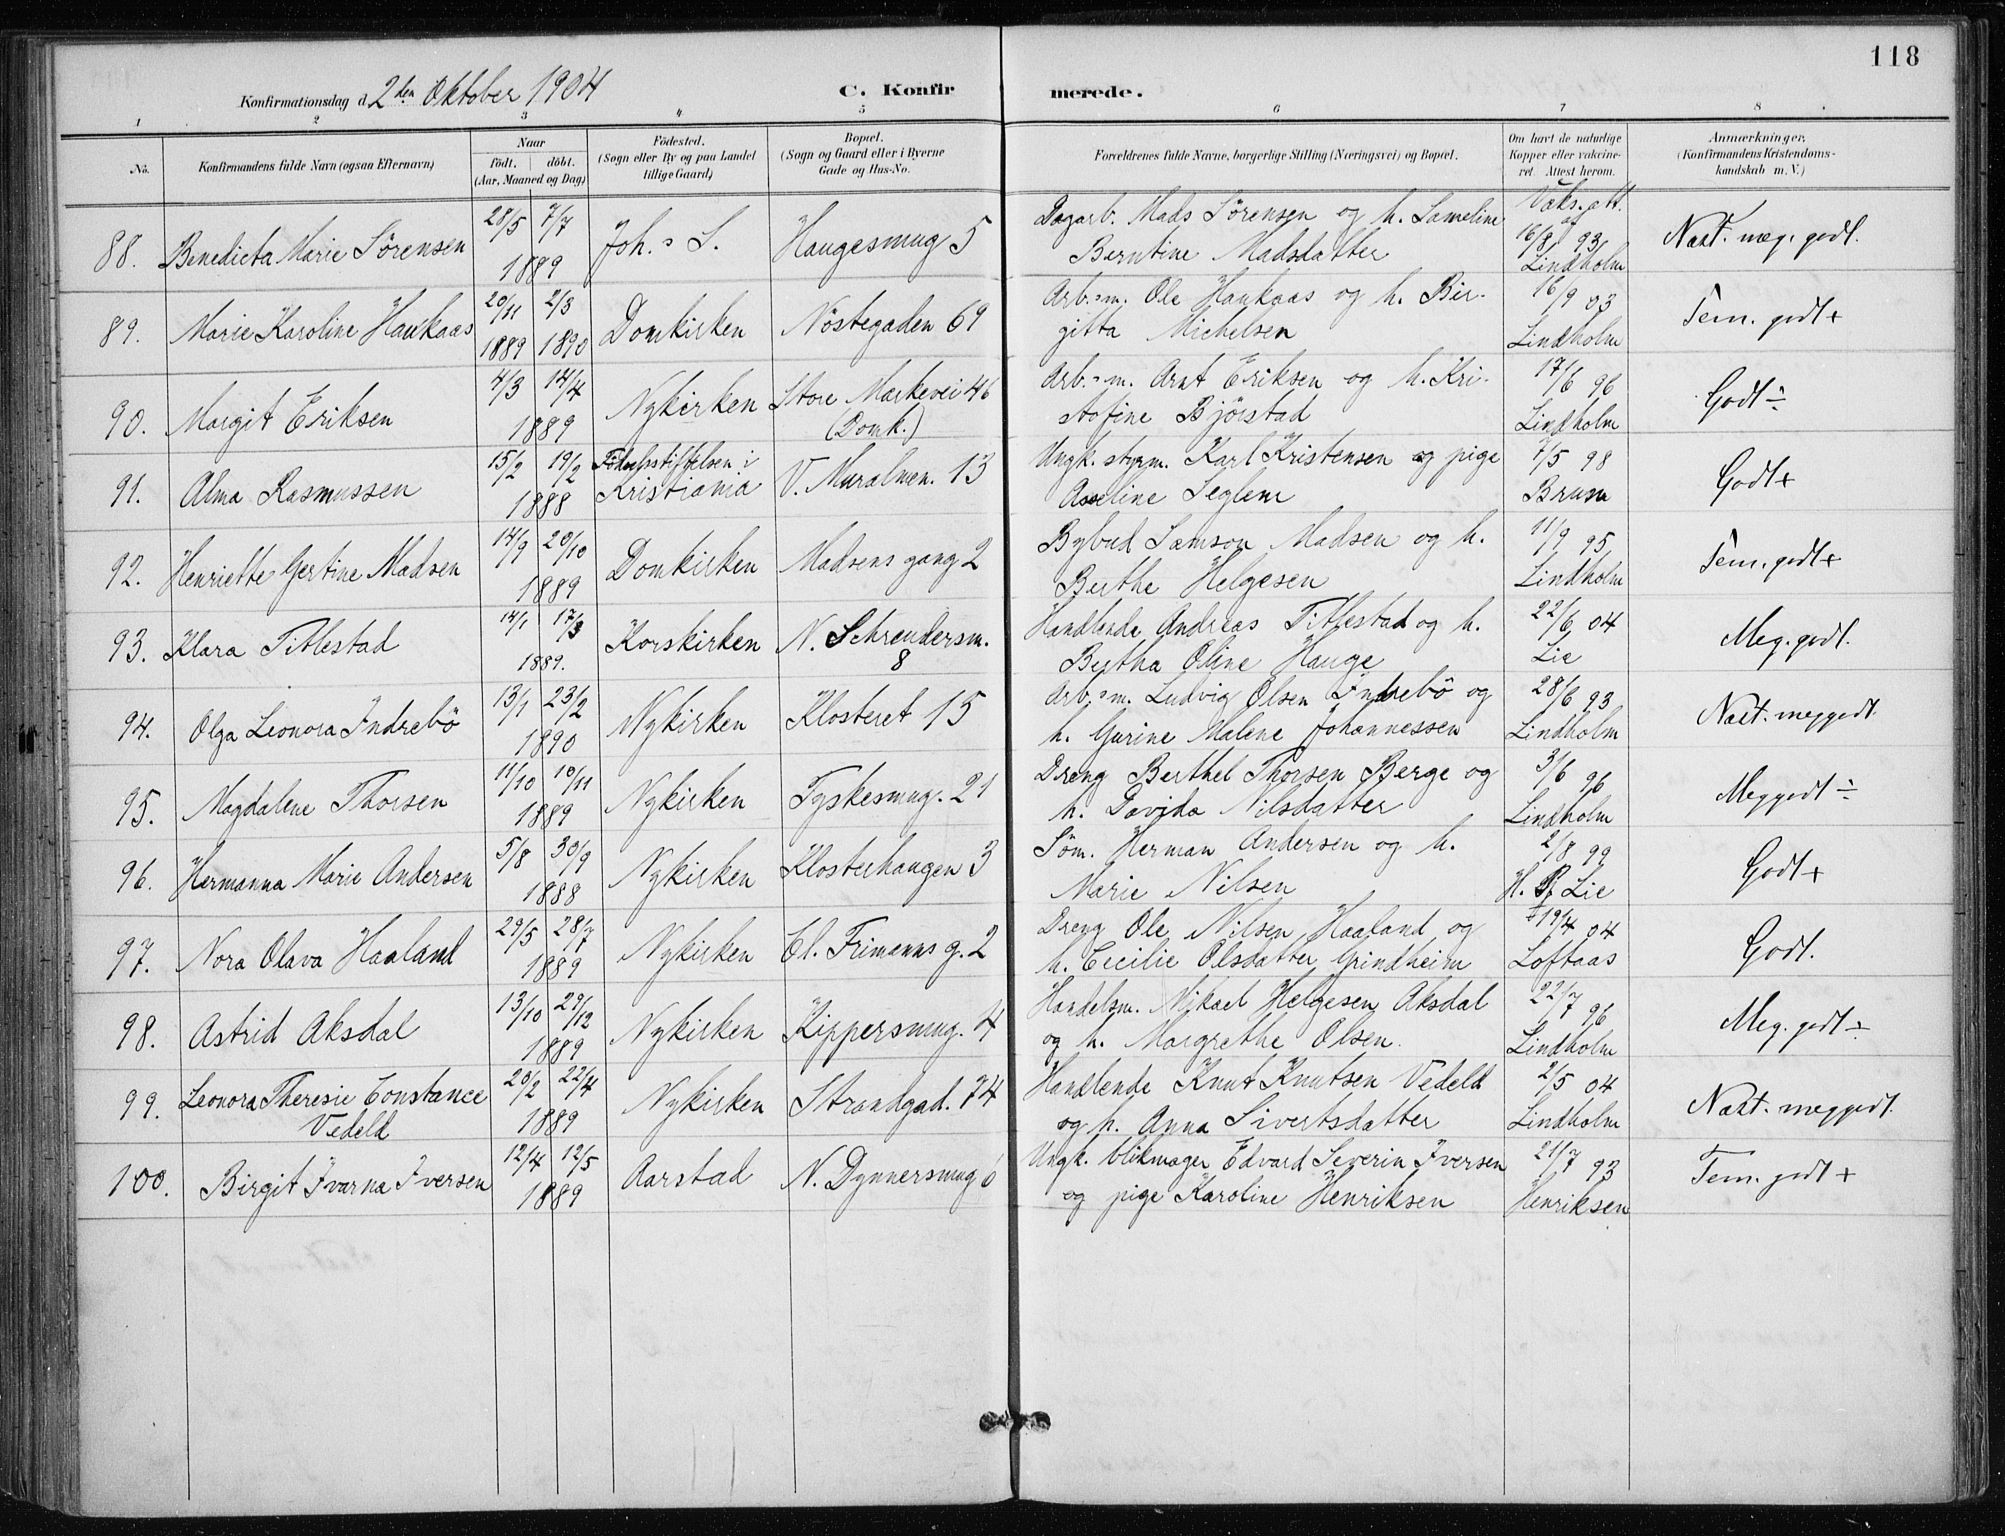 118
Konfirmationsdag d. 2den Oktober 1904 C. Konfirmerede.
1 2 3 4 5 6 7 8
No. Konfirmandens fulde Navn (ogsaa Efternavn) Naar født. døbt. (Aar, Maaned og Dag) Födested. (Sogn eller By og paa Landet tillige Gaard) Bopæl. (Sogn og Gaard eller i Byerne Gade og Hus-No. Forældrenes fulde Navne, borgerlige Stilling (Næringsvei) og Bopæl. Om havt de naturlige Kopper eller vakcineret. Attest herom. Anmærkninger, (Konfirmandens Kristendomskundskab m. V.)
88. Benedicta Marie Sörensen 28/5 7/7 1889 Joh.s L. Haugesmug 5 Dagarb. Mads Sörensen og h. Lameline Berntine Madsdatter Vaks. att. af 16/8 93 Lindholm Næst. meg. godt.
89. Marie Karoline Haukaas 20/11 1889 2/3 1890 Domkirken Nöstegaden 69 Arb.sm. Ole Haukaas og h. Birgitta Michelsen 16/9 03 Lindholm Tem. godt +
90. Margit Eriksen 4/3 14/4 1889 Nykirken Store Markevei 46 (Domk.) Arb.sm. Arnt Eriksen og h. Kristofine Björstad 17/6 96 Lindholm Godt ÷
91. Alma Rasmussen 15/2 19/2 1888 Födselsstiftelsen i Kristiania V. Muralmen. 13 Ungk. styrm. Karl Kristensen og pige Asseline Seglem 7/5 98 Bruun Godt +
92. Henriette Gertine Madsen 14/9 20/10 1889 Domkirken Madsens gang 2 Bybud Samson Madsen og h. Berthe Helgesen 11/9 95 Lindholm Tem. godt +
93. Klara Titlestad 14/1 17/3 1889. Korskirken N. Schreudersm. 8 Handlende Andreas Titlestad og h. Bertha Oline Hauge 22/6 04 Lie Meg. godt.
94. Olga Leonora Indrebö 13/1 23/2 1890 Nykirken Klosteret 15 Arb.sm. Ludvig Olsen Indrebö og h. Gurine Malene Johannessen 28/6 93 Lindholm Næst. meg godt.
95. Magdalene Thorsen 11/10 10/11 1889 Nykirken Tyskesmug. 21 Dreng Berthel Thorsen Berge og h. Davida Nilsdatter 3/6 96 Lindholm Meg godt ÷
96. Hermanna Marie Andersen 5/8 30/9 1888 Nykirken Klosterhaugen 3 Söm. Herman Andersen og h. Marie Nilsen 2/8 99 H. P. Lie Godt +
97. Nora Olava Haaland 29/5 28/7 1889 Nykirken Cl. Frimanns g. 2 Dreng Ole Nilsen Haaland og h. Cecilie Olsdatter Grindheim 19/4 04 Loftaas Godt.
98. Astrid Aksdal 13/10 29/12 1889 Nykirken Kippersmug. 4 Handelsm. Mikael Helgesen Aksdal og h. Margrethe Olsen. 22/7 96 Lindholm Meg. godt ÷
99. Leonora Theresie Constance Vedeld 20/2 22/4 1889 Nykirken Strandgad. 74 Handlende Knut Knutsen Vedeld og h. Anna Sivertsdatter 2/5 04 Lindholm Næst. meg godt.
100. Birgit Ivarna Iversen 12/4 12/5 1889 Aarstad N. Dynnersmug 6 Ungk. blikmager Edvard Severin Iversen og pige Karoline Henriksen 21/7 93 Henriksen Tem. godt +